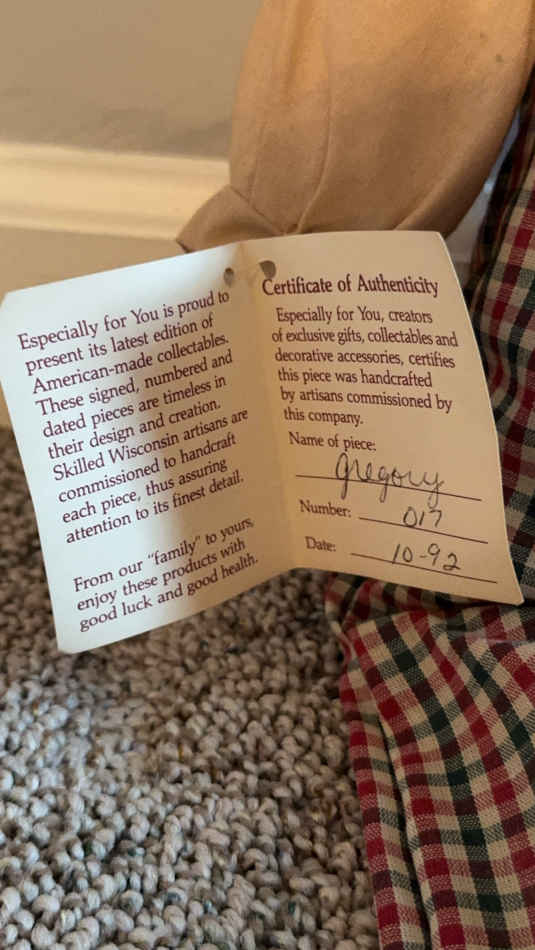 Especially for You is proud to
present its latest edition of
American-made collectables.
These signed, numbered and
dated pieces are timeless in
their design and creation.
Skilled Wisconsin artisans are
commissioned to handcraft
each piece, thus assuring
attention to its finest detail.
From our "family" to yours,
enjoy these products with
good luck and good health.
Certificate of Authenticity
Especially for You, creators
of exclusive gifts, collectables and
decorative accessories, certifies
this piece was handcrafted
by artisans commissioned by
this company.
Name of piece:
Gregory
Number: 017
Date: 10-92